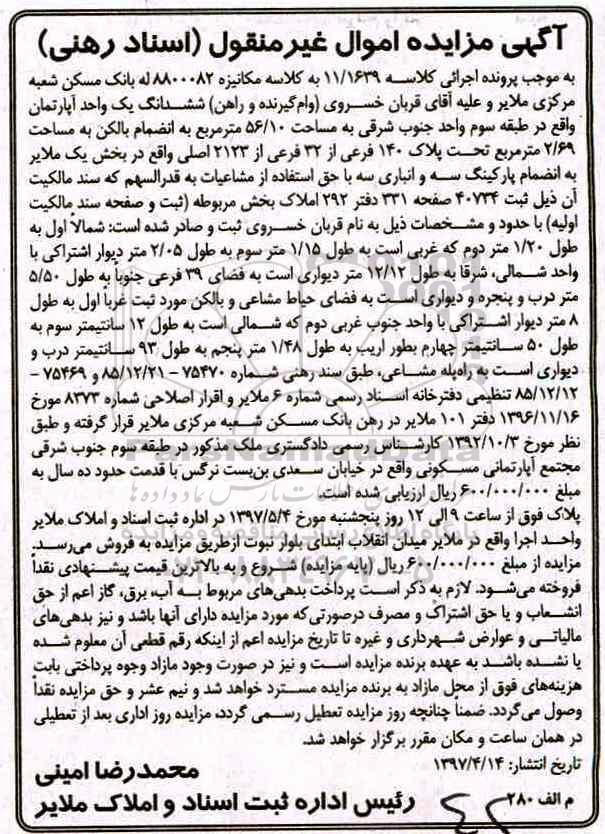 آگهی مزایده اموال غیرمنقول (اسناد رهنی)
به موجب پرونده اجرائی کلاسه ۱۱/۱۶۳۹ به کلاسه مکانیزه ۸۸۰۰۰۸۲ له بانک مسکن شعبه
مرکزی ملایر و علیه آقای قربان خسروی (وام‌گیرنده و راهن) ششدانگ یک واحد آپارتمان
واقع در طبقه سوم واحد جنوب شرقی به مساحت ۵۶/۱۰ مترمربع به انضمام بالکن به مساحت
۲/۶۹ مترمربع تحت پلاک ۱۴۰ فرعی از ۳۲ فرعی از ۲۱۲۳ اصلی واقع در بخش یک ملایر
به انضمام پارکینگ سه و انباری سه با حق استفاده از مشاعیات به قدرالسهم که سند مالکیت
آن ذیل ثبت ۴۰۷۳۴ صفحه ۳۳۱ دفتر ۲۹۲ املاک بخش مربوطه (ثبت و صفحه سند مالکیت
اولیه) با حدود و مشخصات ذیل به نام قربان خسروی ثبت و صادر شده است: شمالاً اول به
طول ۱/۲۰ متر دوم که غربی است به طول ۱/۱۵ متر سوم به طول ۲/۰۵ متر دیوار اشتراکی با
واحد شمالی، شرقا به طول ۱۲/۱۲ متر دیواری است به فضای ۳۹ فرعی جنوباً به طول ۵/۵۰
متر درب و پنجره و دیواری است به فضای حیاط مشاعی و بالکن مورد ثبت غرباً اول به طول
۸ متر دیوار اشتراکی با واحد جنوب غربی دوم که شمالی است به طول ۱۲ سانتیمتر سوم به
طول ۵۰ سانتیمتر چهارم بطور اریب به طول ۱/۴۸ متر پنجم به طول ۹۳ سانتیمتر درب و
دیواری است به راه‌پله مشاعی، طبق سند رهنی شماره ۷۵۴۷۰ – ۸۵/۱۲/۲۱ و ۷۵۴۶۹ –
۸۵/۱۲/۱۲ تنظیمی دفترخانه اسناد رسمی شماره ۶ ملایر و اقرار اصلاحی شماره ۸۳۷۳ مورخ
۱۳۹۶/۱۱/۱۶ دفتر ۱۰۱ ملایر در رهن بانک مسکن شعبه مرکزی ملایر قرار گرفته و طبق
نظر مورخ ۱۳۹۲/۱۰/۳ کارشناس رسمی دادگستری ملک مذکور در طبقه سوم جنوب شرقی
مجتمع آپارتمانی مسکونی واقع در خیابان سعدی بن‌بست نرگس با قدمت حدود ده سال به
مبلغ ۶۰۰/۰۰۰/۰۰۰ ریال ارزیابی شده است.
پلاک فوق از ساعت ۹ الی ۱۲ روز پنجشنبه مورخ ۱۳۹۷/۵/۴ در اداره ثبت اسناد و املاک ملایر
واحد اجرا واقع در ملایر میدان انقلاب ابتدای بلوار نبوت ازطریق مزایده به فروش می‌رسد.
مزایده از مبلغ ۶۰۰/۰۰۰/۰۰۰ ریال (پایه مزایده) شروع و به بالاترین قیمت پیشنهادی نقداً
فروخته می‌شود. لازم به ذکر است پرداخت بدهی‌های مربوط به آب، برق، گاز اعم از حق
انشعاب و یا حق اشتراک و مصرف درصورتی‌که مورد مزایده دارای آنها باشد و نیز بدهی‌های
مالیاتی و عوارض شهرداری و غیره تا تاریخ مزایده اعم از اینکه رقم قطعی آن معلوم شده
یا نشده باشد به عهده برنده مزایده است و نیز در صورت وجود مازاد وجوه پرداختی بابت
هزینه‌های فوق از محل مازاد به برنده مزایده مسترد خواهد شد و نیم عشر و حق مزایده نقداً
وصول می‌گردد. ضمناً چنانچه روز مزایده تعطیل رسمی گردد، مزایده روز اداری بعد از تعطیلی
در همان ساعت و مکان مقرر برگزار خواهد شد.
تاریخ انتشار: ۱۳۹۷/۴/۱۴
محمدرضا امینی
رئیس اداره ثبت اسناد و املاک ملایر
م الف ۲۸۰